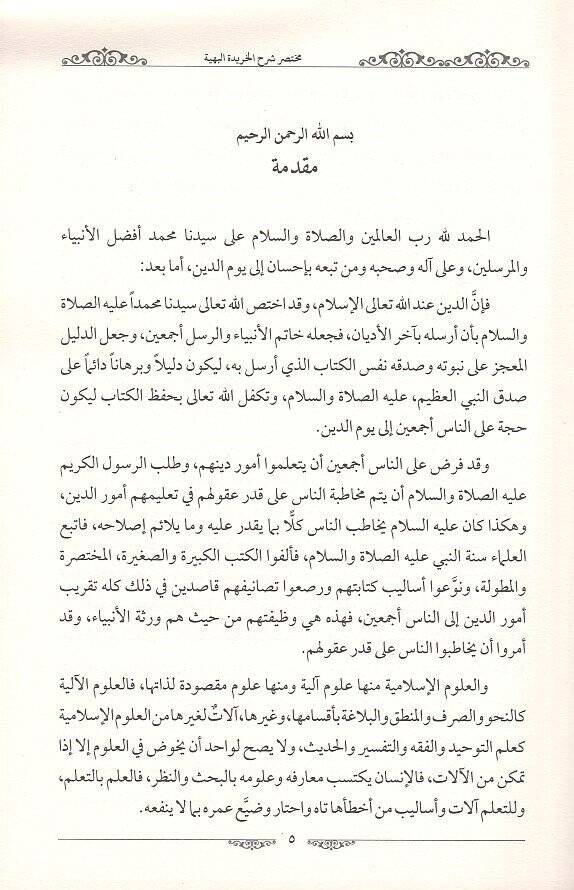 مختصر شرح الخريدة البهية
بسم الله الرحمن الرحيم
مقدمة
الحمد لله رب العالمين والصلاة والسلام على سيدنا محمد أفضل الأنبياء
والمرسلين، وعلى آله وصحبه ومن تبعه بإحسان إلى يوم الدين، أما بعد:
فإنَّ الدين عند الله تعالى الإسلام، وقد اختص الله تعالى سيدنا محمداً عليه الصلاة
والسلام بأن أرسله بآخر الأديان، فجعله خاتم الأنبياء والرسل أجمعين، وجعل الدليل
المعجز على نبوته وصدقه نفس الكتاب الذي أرسل به، ليكون دليلاً وبرهاناً دائماً على
صدق النبي العظيم، عليه الصلاة والسلام، وتكفل الله تعالى بحفظ الكتاب ليكون
حجة على الناس أجمعين إلى يوم الدين.
وقد فرض على الناس أجمعين أن يتعلموا أمور دينهم، وطلب الرسول الكريم
عليه الصلاة والسلام أن يتم مخاطبة الناس على قدر عقولهم في تعليمهم أمور الدين،
وهكذا كان عليه السلام يخاطب الناس كلًّا بما يقدر عليه وما يلائم إصلاحه، فاتبع
العلماء سنة النبي عليه الصلاة والسلام، فألفوا الكتب الكبيرة والصغيرة، المختصرة
والمطولة، ونوَّعوا أساليب كتابتهم ورصعوا تصانيفهم قاصدين في ذلك كله تقريب
أمور الدين إلى الناس أجمعين، فهذه هي وظيفتهم من حيث هم ورثة الأنبياء، وقد
أمروا أن يخاطبوا الناس على قدر عقولهم.
والعلوم الإسلامية منها علوم آلية ومنها علوم مقصودة لذاتها، فالعلوم الآلية
كالنحو والصرف والمنطق والبلاغة بأقسامها، وغيرها، آلاتٌ لغيرها من العلوم الإسلامية
كعلم التوحيد والفقه والتفسير والحديث، ولا يصح لواحد أن يخوض في العلوم إلا إذا
تمكن من الآلات، فالإنسان يكتسب معارفه وعلومه بالبحث والنظر، فالعلم بالتعلم،
وللتعلم آلات وأساليب من أخطأها تاه واحتار وضيَّع عمره بما لا ينفعه.
٥